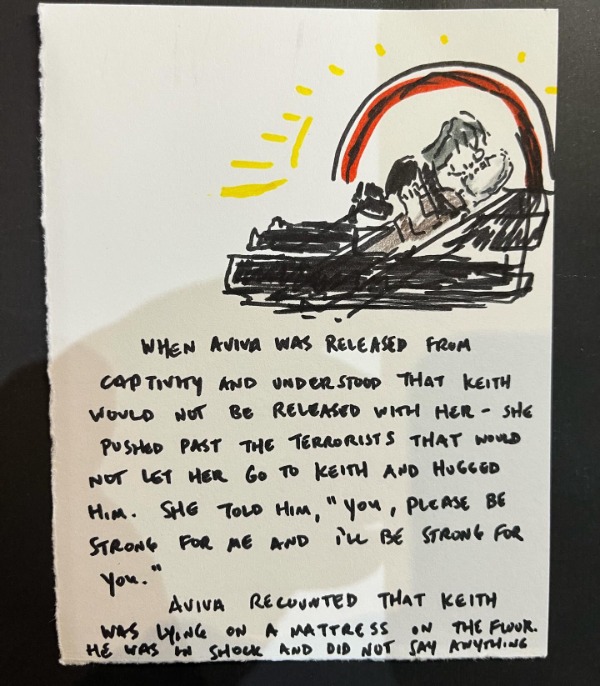 WHEN AVIVA WAS RELEASED FROM
CAPTIVITY AND UNDERSTOOD THAT KEITH
WOULD NOT BE RELEASED WITH HER - SHE
PUSHED PAST THE TERRORISTS THAT WOULD
NOT LET HER GO TO KEITH AND HUGGED
HIM. SHE TOLD HIM, "YOU, PLEASE BE
STRONG FOR ME AND I'LL BE STRONG FOR
YOU."
AVIVA RECOUNTED THAT KEITH
WAS LYING ON A MATTRESS ON THE FLOOR.
HE WAS IN SHOCK AND DID NOT SAY ANYTHING